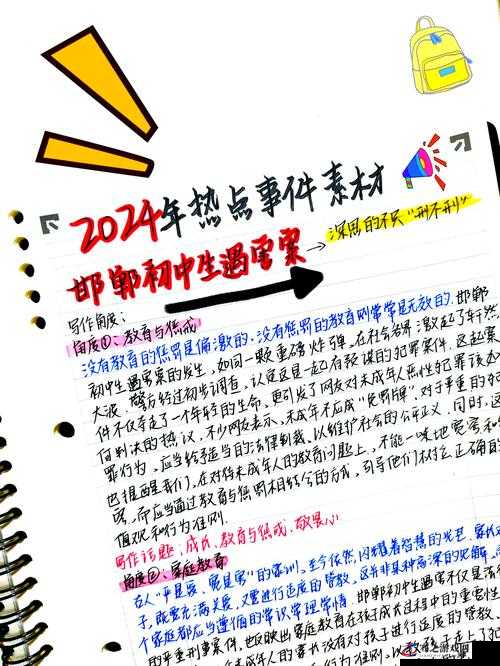 2024年热点事件素材
邯郸初中生遇害案 → 深思的不只"刑不刑"
写作角度:
角度①:教育与惩戒
没有教育的惩罚是偏激的,没有惩罚的教育则常常是无效的.邯郸
初中生遇害案的发生,如同一颗重磅炸弹,在社会各界激起了轩然
大波.警方经过初步调查,认定这是一起有预谋的犯罪案件.这起案
件不仅夺走了一个年轻的生命,更引发了网友对未成年人恶性犯罪该如
何判决的热议.不少网友表示,未成年不应成"免罚牌".对于严重的犯
罪行为,应当给予适当的法律制裁,以维护社会的公平正义.同时,这
也提醒我们,在对待未成年人的教育问题上,不能一味地宽容和
害,而应当通过教育与惩罚相结合的方式,引导他们树立正确的
值观和行为准则.
写作话题:成长、教育与惩戒、敬畏心
角度②:家庭教育
古人"严是爱,宽是害"的家训,至今依然闪耀着智慧的光芒.
子,既要充满关爱,又要进行适度的管教,这并非某种高深的见解,
个家庭都应当遵循的常识常理常情.邯郸初中生遇害不仅是
的严重刑事案件,也反映出家庭教育在孩子成长过程中的重要性
的家长没有对孩子进行适度的管教、